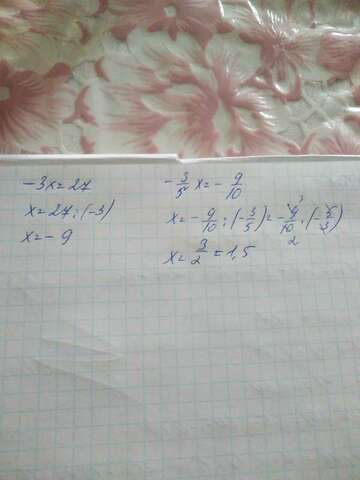 -3x=27
x=27:(-3)
x=-9
-3/5 x=-9/10
x=-9/10:(-3/5)=-9/10·(-5/3)
3
2
x=3/2=1,5